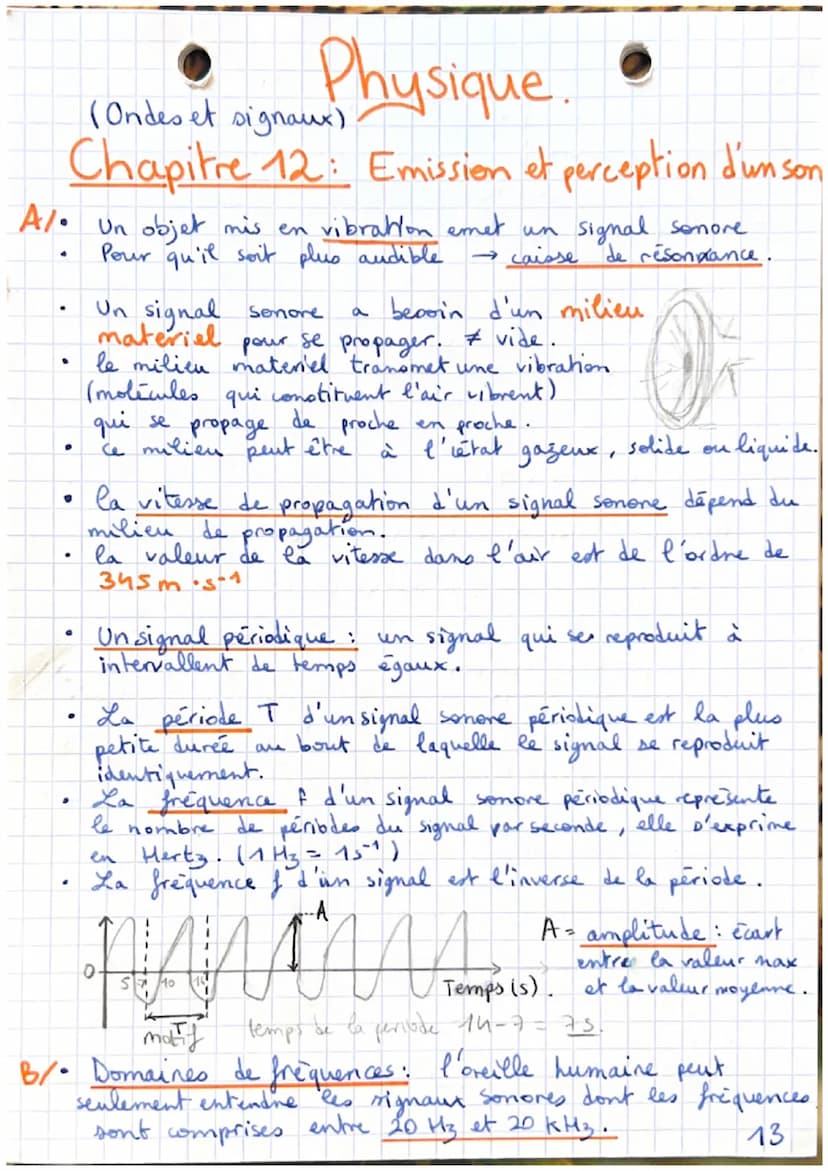 Physique.
(Ondes et signaux)
Chapitre 12 : Emission et perception d'un son
A/• Un objet mis en vibration emet un signal sonore
• Pour qu'il soit plus audible → caisse de résonnance.
• Un signal sonore a besoin d'un milieu
materiel pour se propager. ≠ vide.
• le milieu materiel transmet une vibration
(molécules qui constituent l'air vibrent)
qui se propage de proche en proche.
• ce milieu peut être à l'état gazeux, solide ou liquide.
• la vitesse de propagation d'un signal sonore dépend du
milieu de propagation.
• la valeur de la vitesse dans l'air est de l'ordre de
345 m · s-1
• Un signal périodique : un signal qui se reproduit à
intervallent de temps égaux.
• La période T d'un signal sonore périodique est la plus
petite durée au bout de laquelle le signal se reproduit
identiquement.
• La fréquence f d'un signal sonore périodique représente
le nombre de périodes du signal par seconde, elle s'exprime
en Hertz. (1 Hz = 1s-1)
• La fréquence f d'un signal est l'inverse de la période.
A
A = amplitude : écart
entre la valeur max
et la valeur moyenne.
0
5 7 10 14
Temps (s).
T
motif
temps de la periode 14-7 = 7s.
B/• Domaines de fréquences : l'oreille humaine peut
seulement entendre les signaux sonores dont les fréquences
sont comprises entre 20 Hz et 20 kHz.
13